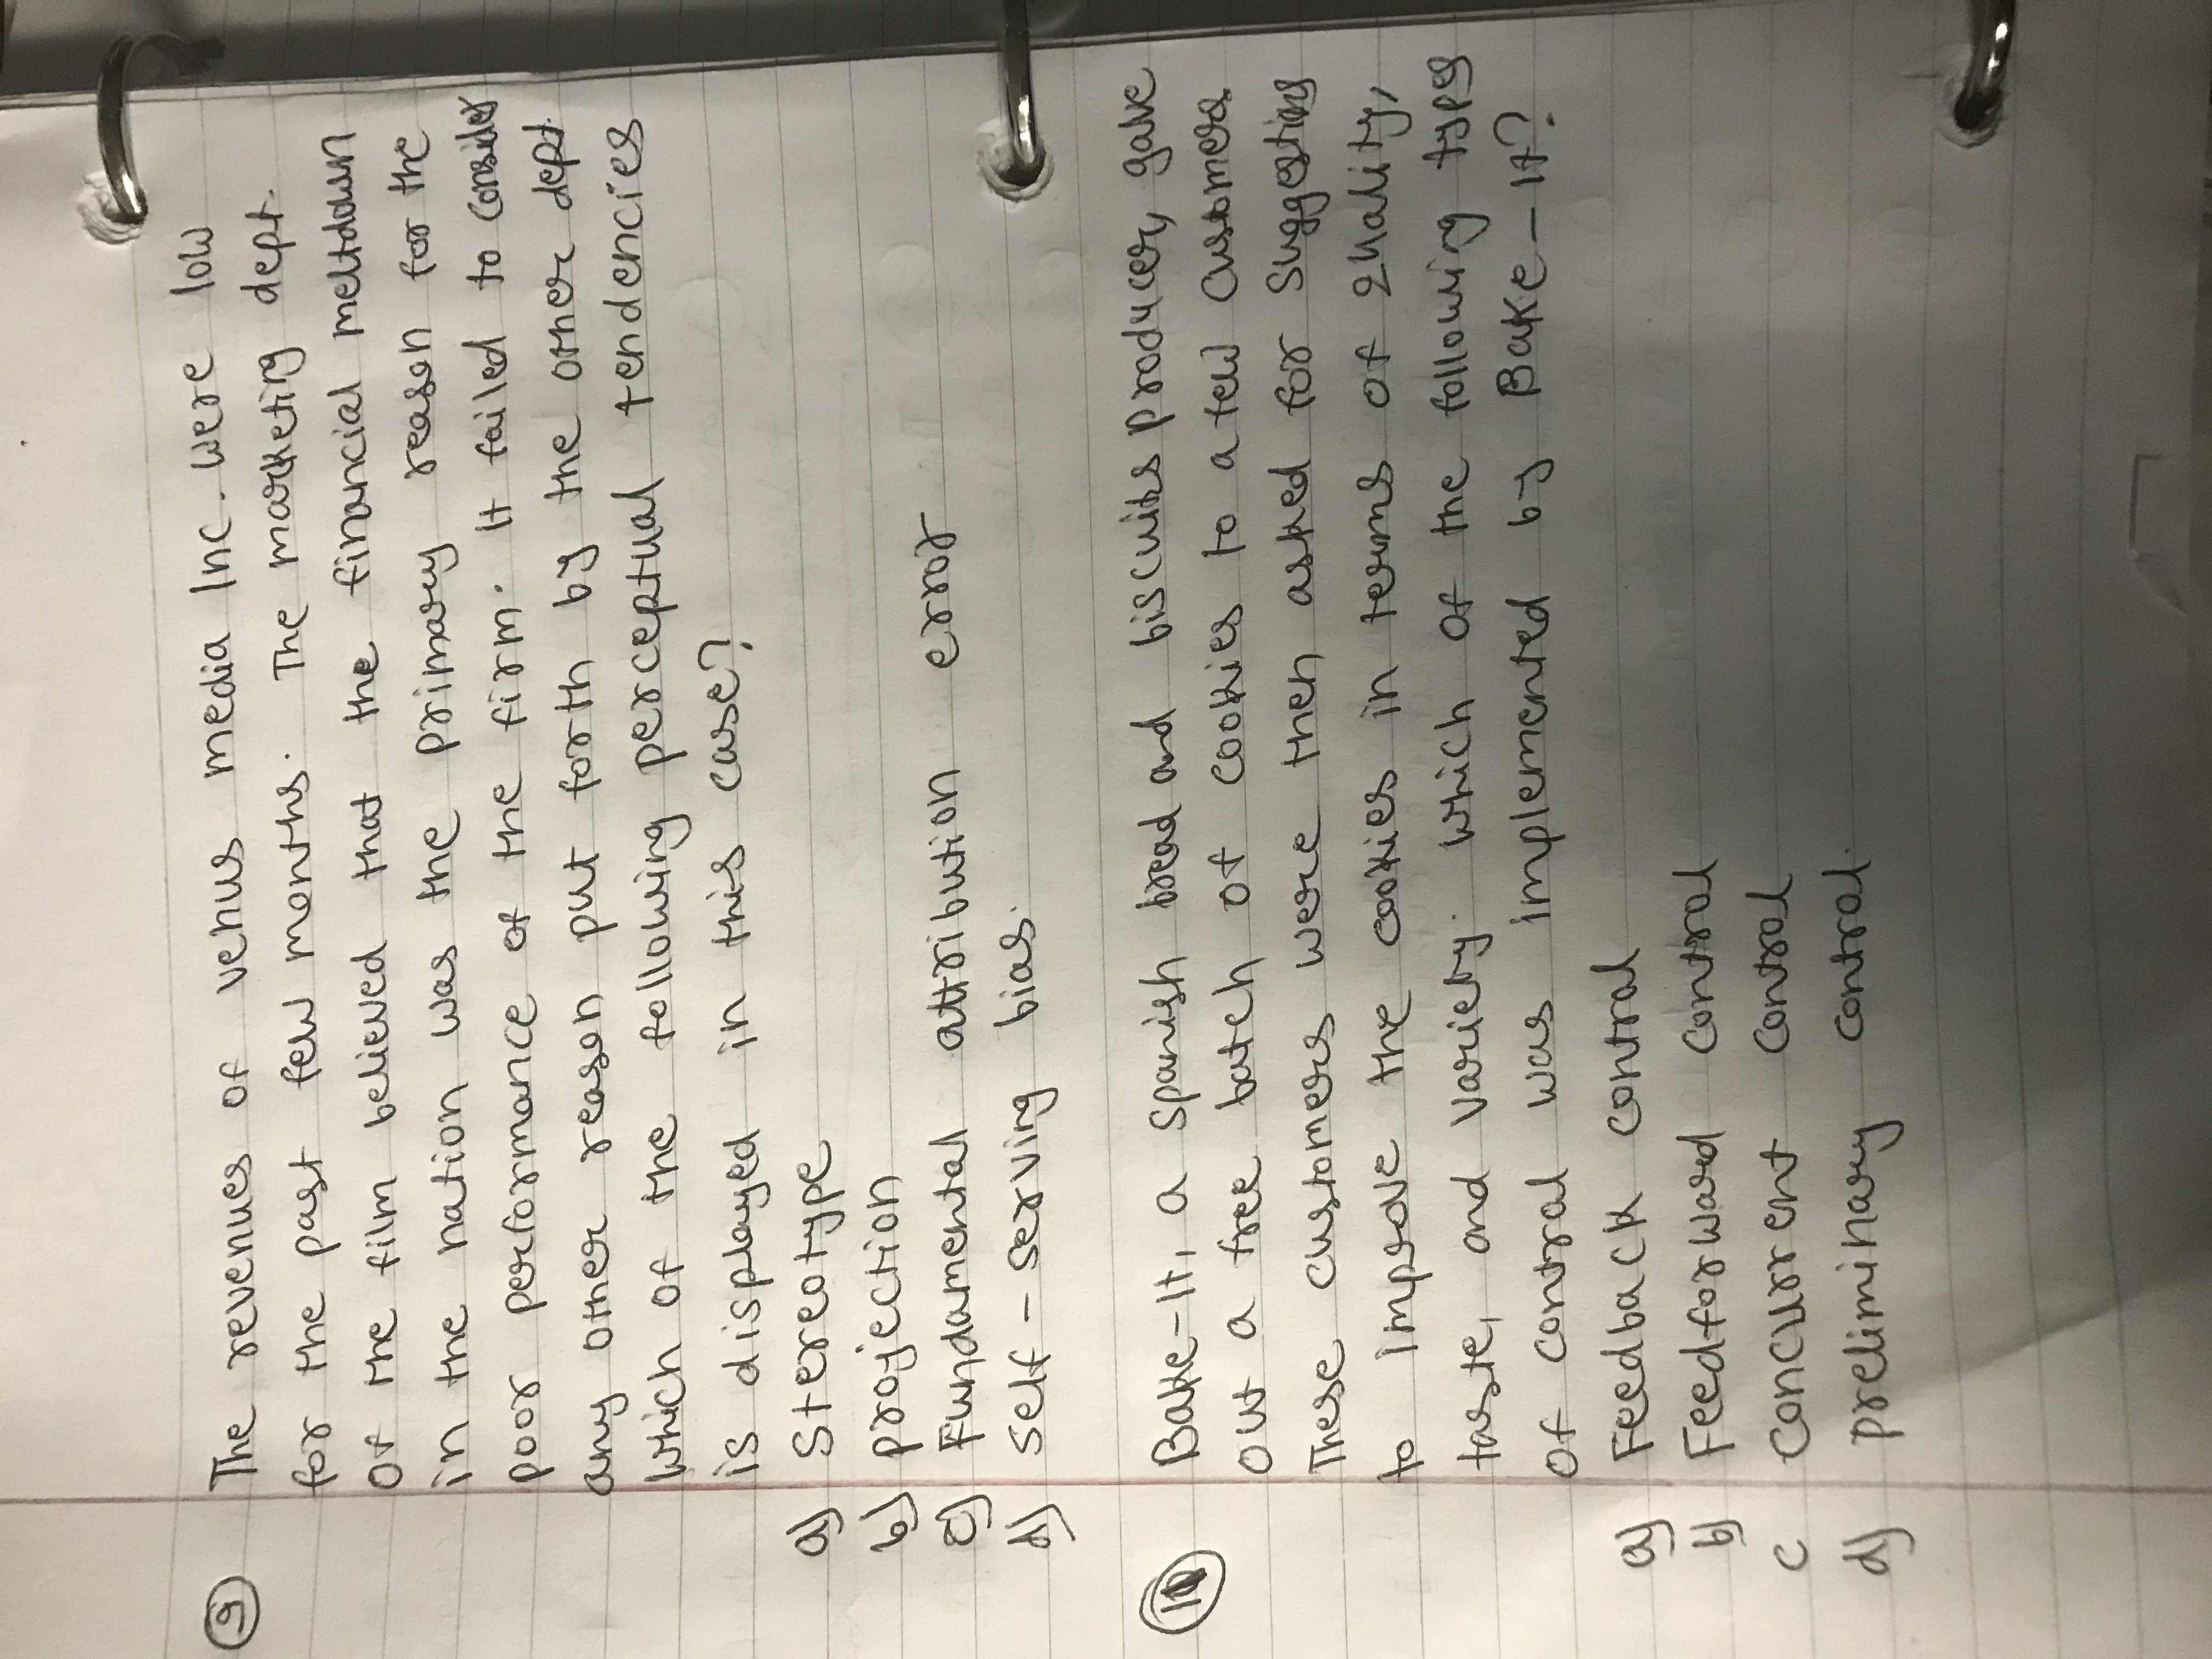 9 The revenues of venus media Inc. were low
for the past few months. The marketing dept.
of the film believed that the financial meltdown
in the nation was the primary reason for the
poor performance of the firm. It failed to consider
any other reason put forth by the other dept.
which of the following perceptual tendencies
is displayed in this case?
a) Stereotype
b) projection
c) Fundamental attribution error
d) self-serving bias.
10 Bake-It, a spanish bread and biscuits producer, gave
out a free batch of cookies to a few customers
These customers were then asked for suggestions
to improve the cookies in terms of quality,
taste, and variety. which of the following types
of control was implemented by Bake-It?
a) Feedback control
b) Feedforward control
c Concurrent control
d) preliminary control.